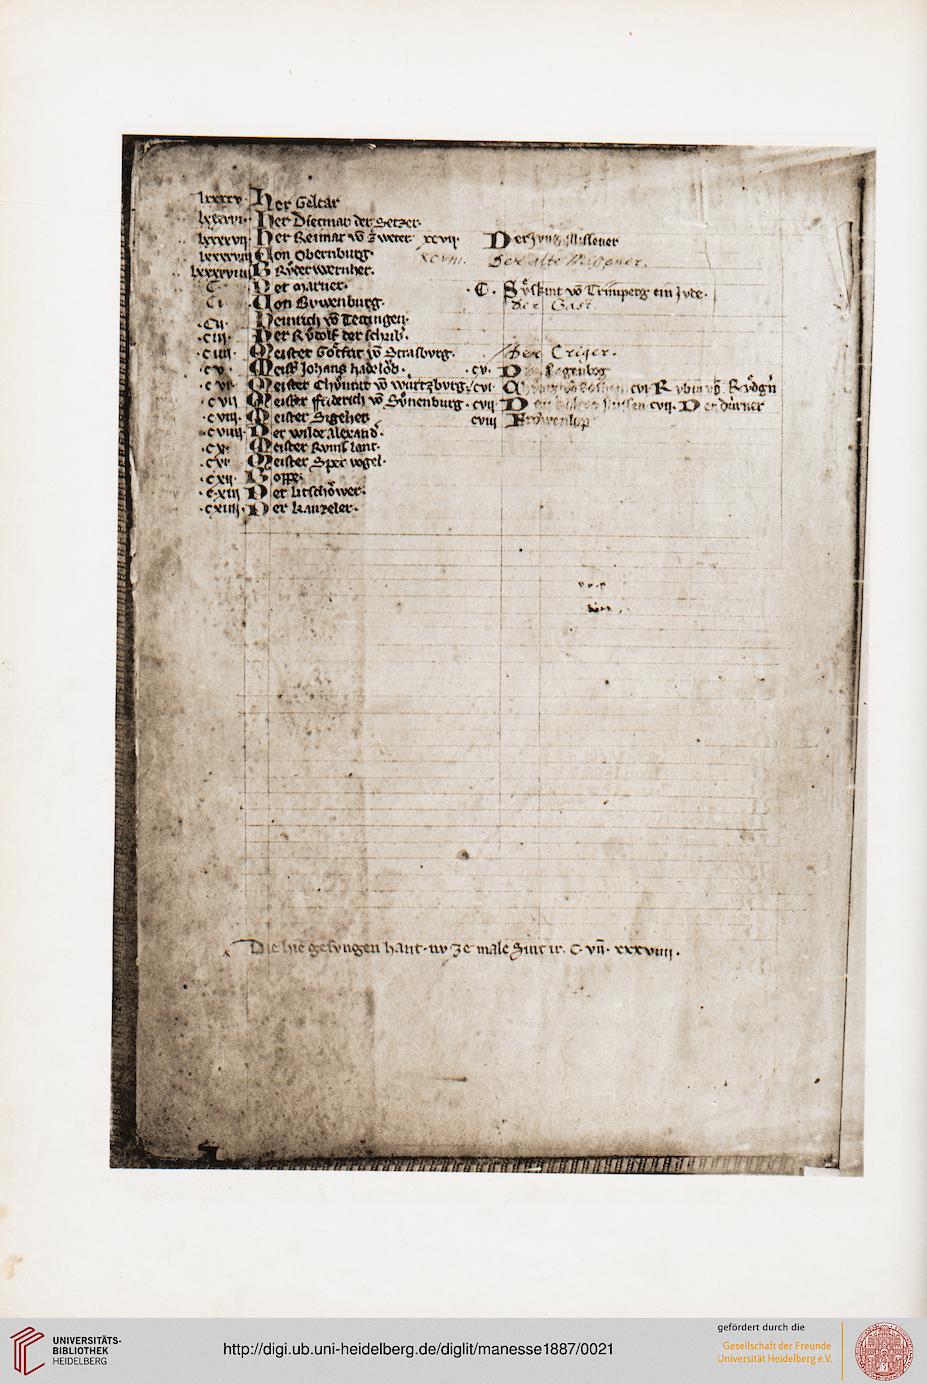 lxxxxv Her Geltar
lxxxxvi· Her Dietmar der Setzer·
lxxxxvij· Her Reimar vō Zweter· xcvij· Der Jvng Missener
lxxxxviij Von Obernburg· xcviii. Der alte Meissner.
lxxxxviiij Brůder Wernher·
·C· Der Marner· ·C· Sůskint vō Trimperg ein Jvde·
·Ci· Von Bvwenburg· der Gast.
·Cij· Heinrich vō Tettingen·
·ciij· Der Růdolf der schrib̄·
·ciiij· Meister Gotfrit vō Strasbvrg· Der Criger.
·cv· Meist̄ Johans Hadlōb· ·cv· Der Regenbog
·cvi· Meister Chůnrat vō Wurtzbvrg· cvi cvi Rvbin vō Rvdgn̄
·cvij Meister Friderich vō Svnenburg· cvij Der cvij· Der Dúrner
·cviij· Meister Sigeher cviij Frowenlop
·cviiij· Der Wilde Alexand̄·
·cx· Meister Rvmslant·
·cxi· Meister Spervogel·
·cxij· Boppe·
·cxiij Der Litschower·
·cxiiij· Der Kanzeler·
Die hie gesvngen hant· nv ze male Sint ir· C· vn̄· xxxviiij·
UNIVERSITÄTS-
BIBLIOTHEK
HEIDELBERG
http://digi.ub.uni-heidelberg.de/diglit/manesse1887/0021
gefördert durch die
Gesellschaft der Freunde
Universität Heidelberg e.V.